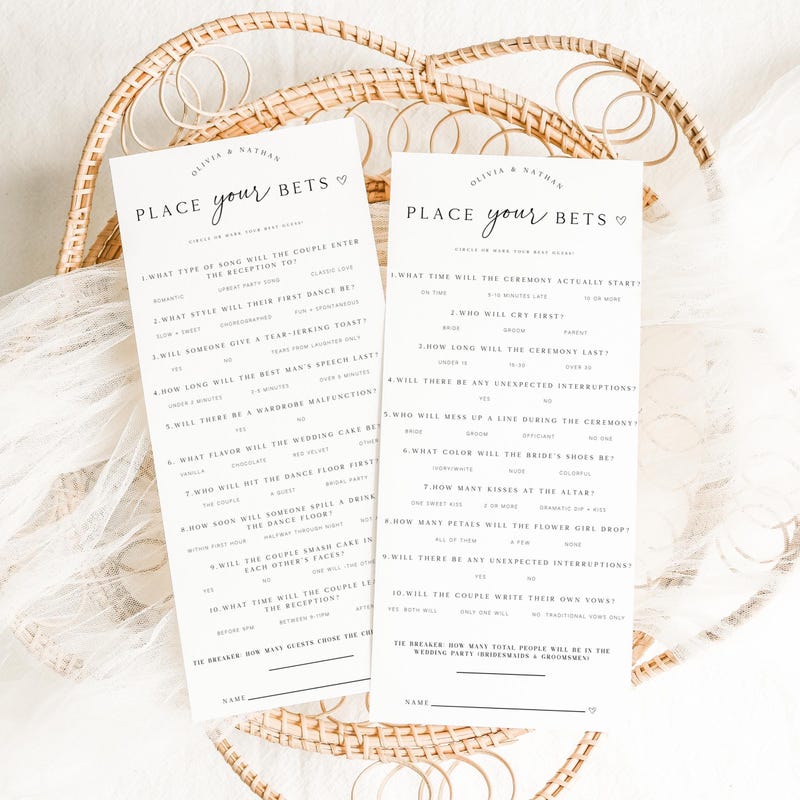 OLIVIA & NATHAN
PLACE your BETS
CIRCLE OR MARK YOUR BEST GUESS!
1.WHAT TYPE OF SONG WILL THE COUPLE ENTER
THE RECEPTION TO?
ROMANTIC UPBEAT PARTY SONG CLASSIC LOVE
2.WHAT STYLE WILL THEIR FIRST DANCE BE?
SLOW + SWEET CHOREOGRAPHED FUN + SPONTANEOUS
3.WILL SOMEONE GIVE A TEAR-JERKING TOAST?
YES NO TEARS FROM LAUGHTER ONLY
4.HOW LONG WILL THE BEST MAN'S SPEECH LAST?
UNDER 2 MINUTES 2-5 MINUTES OVER 5 MINUTES
5.WILL THERE BE A WARDROBE MALFUNCTION?
YES NO
6. WHAT FLAVOR WILL THE WEDDING CAKE BE?
VANILLA CHOCOLATE RED VELVET OTHER
7.WHO WILL HIT THE DANCE FLOOR FIRST?
THE COUPLE A GUEST BRIDAL PARTY
8.HOW SOON WILL SOMEONE SPILL A DRINK
THE DANCE FLOOR?
WITHIN FIRST HOUR HALFWAY THROUGH NIGHT NOT
9.WILL THE COUPLE SMASH CAKE IN
EACH OTHER'S FACES?
YES NO ONE WILL -THE OTHE
10.WHAT TIME WILL THE COUPLE LEA
THE RECEPTION?
BEFORE 9PM BETWEEN 9-11PM AFTER
TIE BREAKER: HOW MANY GUESTS CHOSE THE CH
NAME
OLIVIA & NATHAN
PLACE your BETS
CIRCLE OR MARK YOUR BEST GUESS!
1.WHAT TIME WILL THE CEREMONY ACTUALLY START?
ON TIME 5-10 MINUTES LATE 10 OR MORE
2.WHO WILL CRY FIRST?
BRIDE GROOM PARENT
3.HOW LONG WILL THE CEREMONY LAST?
UNDER 15 15-30 OVER 30
4.WILL THERE BE ANY UNEXPECTED INTERRUPTIONS?
YES NO
5.WHO WILL MESS UP A LINE DURING THE CEREMONY?
BRIDE GROOM OFFICIANT NO ONE
6.WHAT COLOR WILL THE BRIDE'S SHOES BE?
IVORY/WHITE NUDE COLORFUL
7.HOW MANY KISSES AT THE ALTAR?
ONE SWEET KISS 2 OR MORE DRAMATIC DIP + KISS
8.HOW MANY PETALS WILL THE FLOWER GIRL DROP?
ALL OF THEM A FEW NONE
9.WILL THERE BE ANY UNEXPECTED INTERRUPTIONS?
YES NO
10.WILL THE COUPLE WRITE THEIR OWN VOWS?
YES BOTH WILL ONLY ONE WILL NO TRADITIONAL VOWS ONLY
TIE BREAKER: HOW MANY TOTAL PEOPLE WILL BE IN THE
WEDDING PARTY (BRIDESMAIDS & GROOMSMEN)
NAME